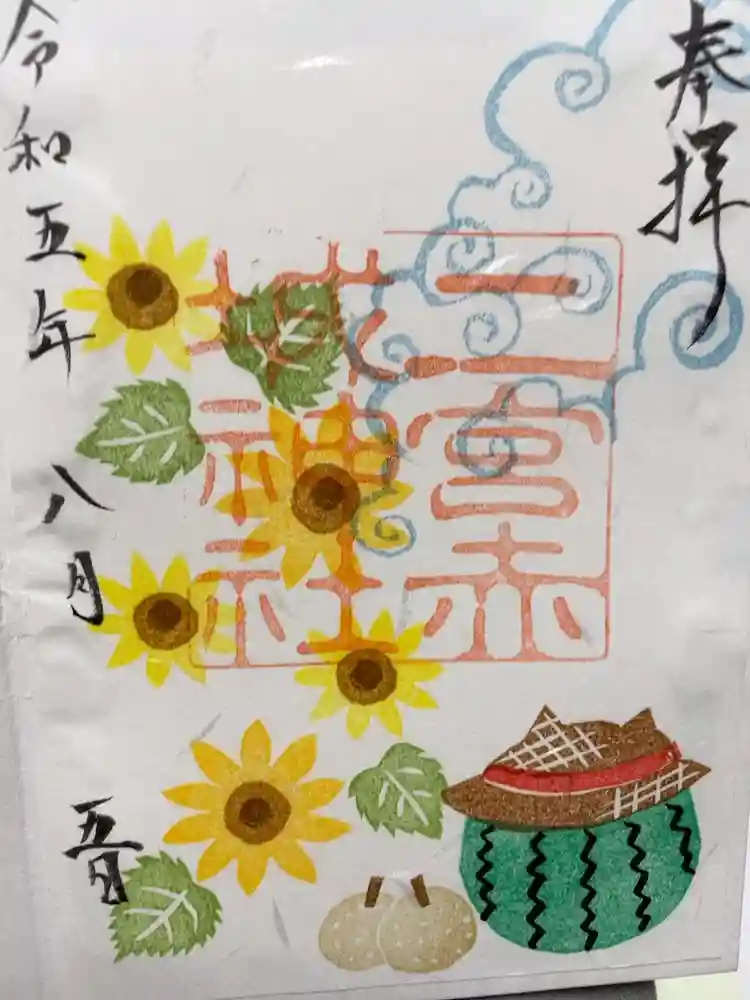 奉拝
二宮赤
城神社
令和五年八月五日